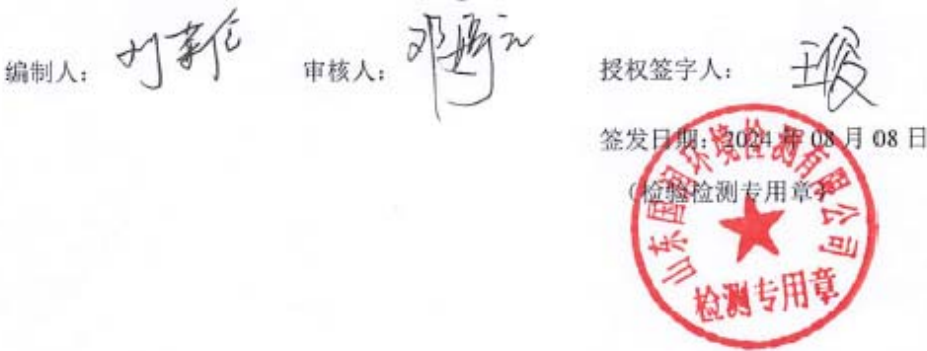 编制人: 刘 审核人: 邓 授权签字人: 王俊
签发日期: 2024 年 08 月 08 日
(检验检测专用章)
山东国润环境检测有限公司
检测专用章